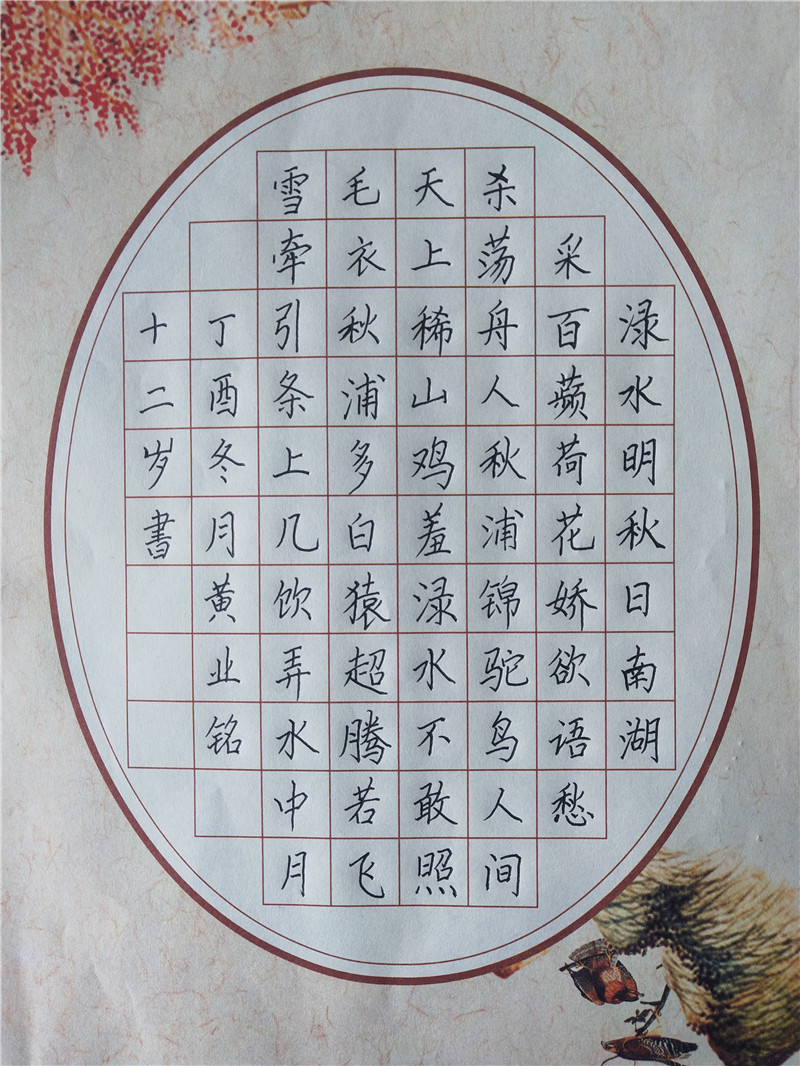 渌水明秋日南湖
采百𬞟荷花娇欲语愁
杀荡舟人秋浦锦驼鸟人间
天上稀山鸡羞渌水不敢照
毛衣秋浦多白猿超腾若飞
雪牵引条上几饮弄水中月
丁酉冬月黄业铭
十二岁書